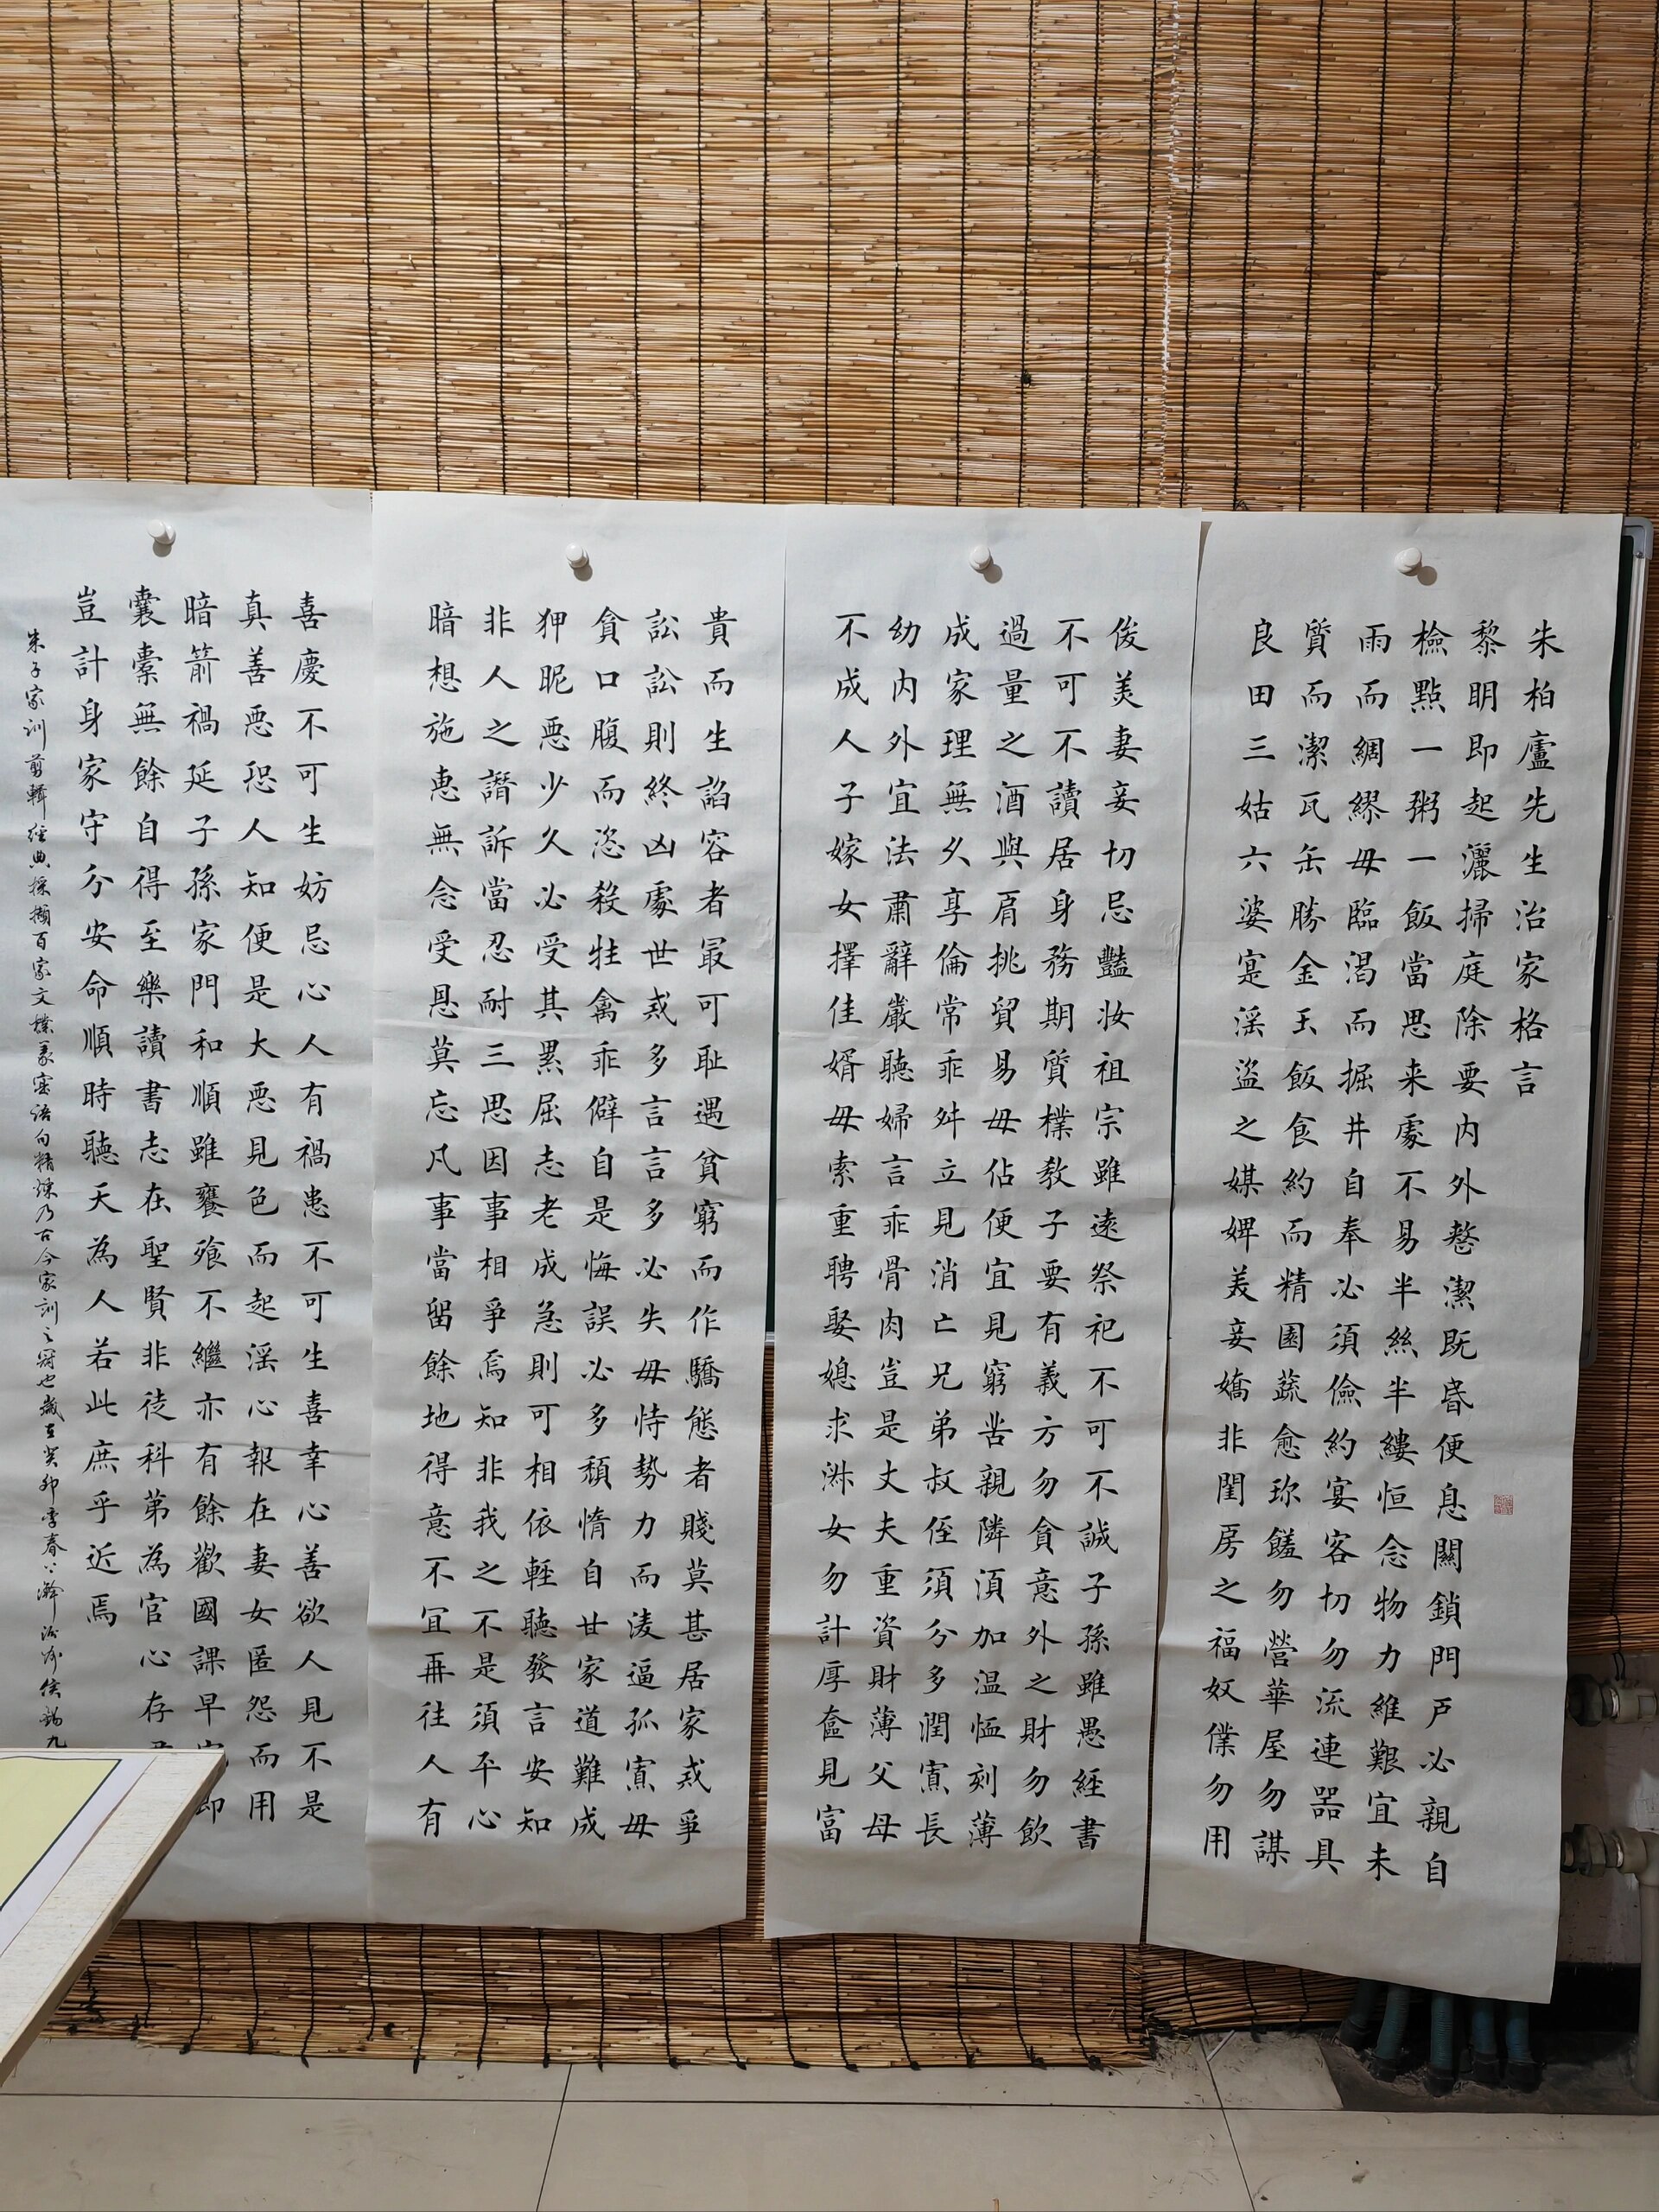 朱柏廬先生治家格言
黎明即起灑掃庭除要内外整潔既昏便息關鎖門户必親自
檢點一粥一飯當思来處不易半絲半縷恒念物力維艱宜未
雨而綢繆毋臨渴而掘井自奉必須儉約宴客切勿流連器具
質而潔瓦缶勝金玉飯食約而精園蔬愈珎饈勿營華屋勿謀
良田三姑六婆寔淫盗之媒婢美妾嬌非閨房之福奴僕勿用
俊美妻妾切忌豔妝祖宗雖遠祭祀不可不誠子孫雖愚經書
不可不讀居身務期質樸教子要有義方勿貪意外之財勿飲
過量之酒與肩挑貿易毋佔便宜見窮苦親隣湏加温恤刻薄
成家理無久享倫常乖舛立見消亡兄弟叔侄須分多潤寡長
幼内外宜法肅辭嚴聽婦言乖骨肉豈是丈夫重資財薄父母
不成人子嫁女擇佳婿毋索重聘娶媳求淑女勿計厚奩見富
貴而生諂容者最可耻遇貧窮而作驕態者賤莫甚居家戒爭
訟訟則終凶處世戒多言言多必失毋恃勢力而淩逼孤寡毋
貪口腹而恣殺牲禽乖僻自是悔誤必多頹惰自甘家道難成
狎昵惡少久必受其累屈志老成急則可相依輕聽發言安知
非人之譖訴當忍耐三思因事相爭焉知非我之不是須平心
暗想施惠無念受恩莫忘凡事當留餘地得意不宜再往人有
喜慶不可生妨忌心人有禍患不可生喜幸心善欲人見不是
真善惡恐人知便是大惡見色而起淫心報在妻女匿怨而用
暗箭禍延子孫家門和順雖饔飧不繼亦有餘歡國課早完即
囊橐無餘自得至樂讀書志在聖賢非徒科第為官心存
豈計身家守分安命順時聽天為人若此庶乎近焉
朱子家訓剪輯經典採擷百家文樸義蜜語句精煉乃古今家訓之冠也歲在癸卯季春